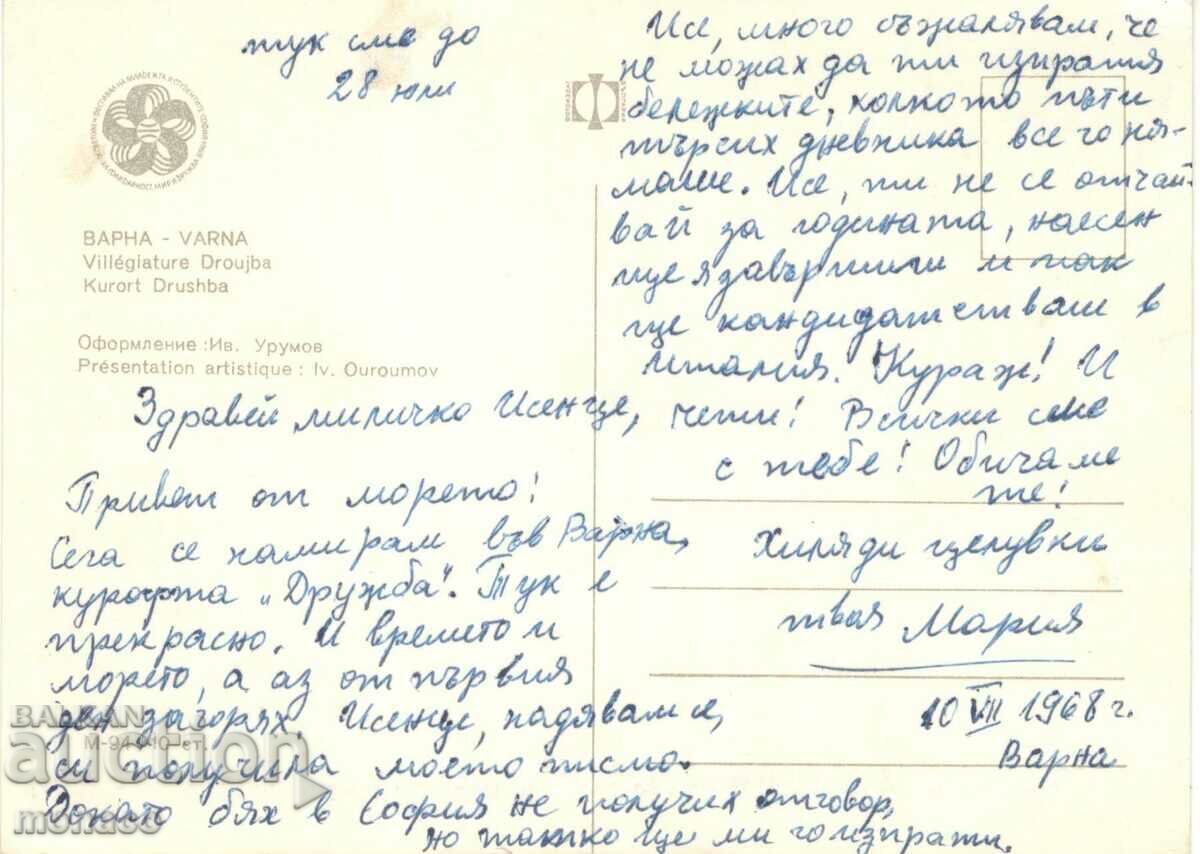 тук сме до
28 юли
ВАРНА - VARNA
Villégiature Droujba
Kurort Drushba
Оформление :Ив. Урумов
Présentation artistique : Iv. Ouroumov
Здравей миличко Исенце,
Привет от морето!
Сега се намирам във Варна,
курорта „Дружба". Тук е
прекрасно. И времето и
морето, а аз от първия
ден загорях. Исенце, надявам се,
си получила моето писмо.
Докато бях в София не получих отговор,
но татко ще ми го изпрати.
Исе, много съжалявам, че
не можах да ти изпратя
бележките, колкото пъти
търсих дневника все го ня-
маше. Исе, ти не се отчай-
вай за годината, наесен
ще я завършиш и пак
ще кандидатстваш в
Италия. Кураж! И
чети! Всички сме
с тебе! Обичаме
те!
Хиляди целувки
твоя Мария
10 VII 1968 г.
Варна
М-944-10-ст.
BALKAN
auction
monaco